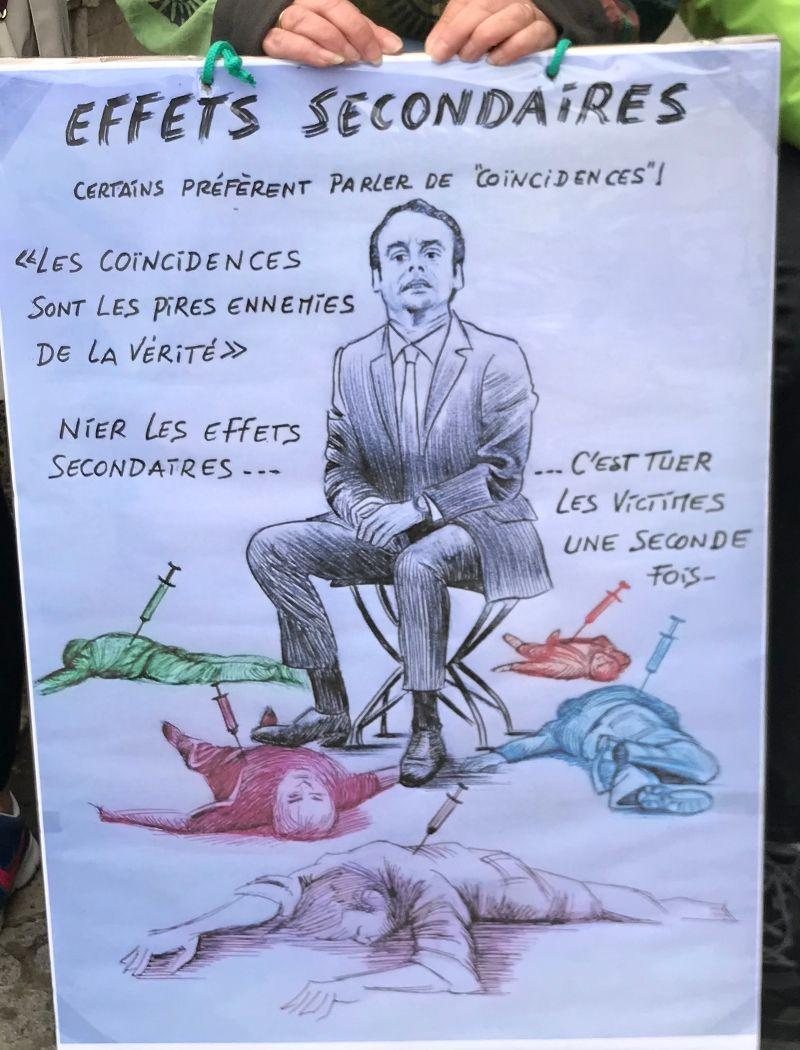 EFFETS SECONDAIRES
CERTAINS PRÉFÈRENT PARLER DE "COÏNCIDENCES"!
«LES COÏNCIDENCES
SONT LES PIRES ENNEMIES
DE LA VÉRITÉ»
NIER LES EFFETS
SECONDAIRES ---
--- C'EST TUER
LES VICTIMES
UNE SECONDE
FOIS-